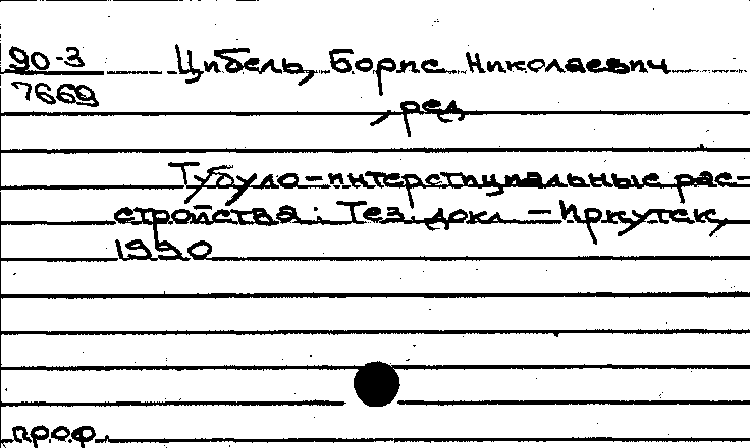 90-3 Цибель, Борис Николаевич
7669
, ред
Тубуло-интерстициальные рас-
стройства: Тез. докл. - Иркутск,
1990
проф.